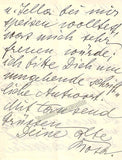 u. Stella bei mir
speisen wolltest,
was mich sehr
freuen würde.
Ich bitte Dich um
umgehende schrift-
liche Antwort.
Mit tausend
Grüssen
Deine alte